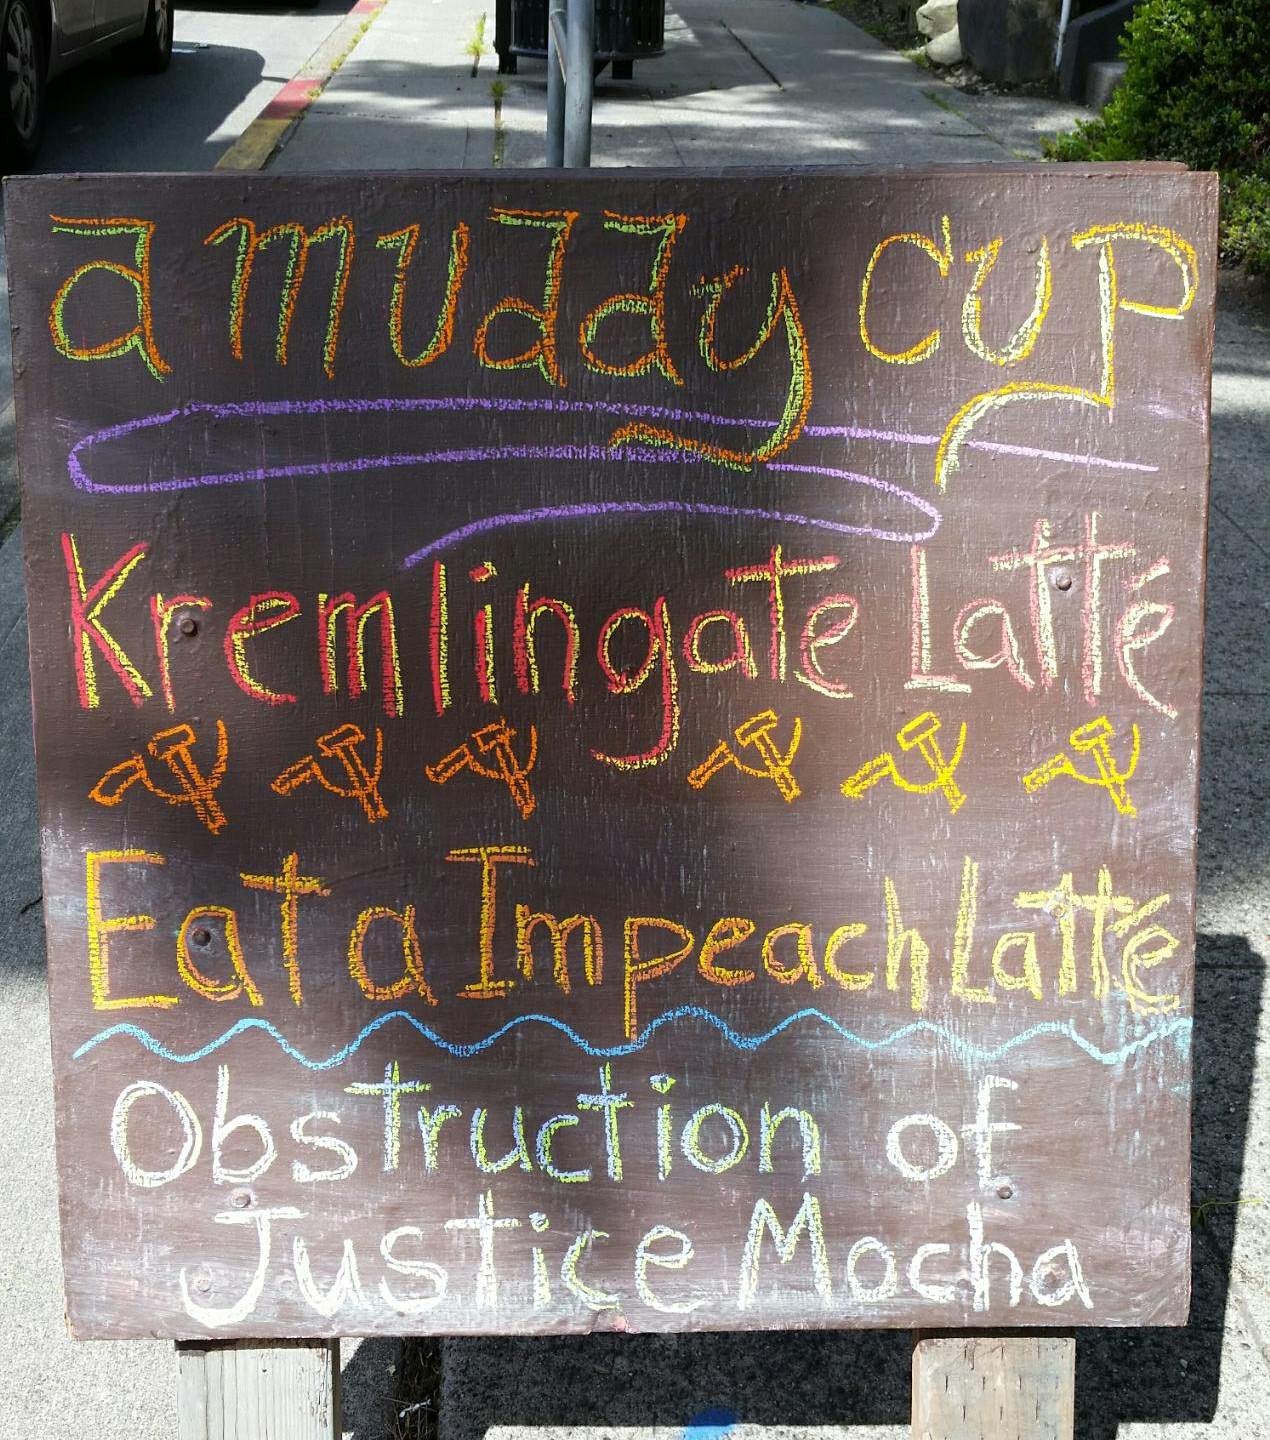 a muddy cup
Kremlingate Latté
Eat a Impeach Latté
Obstruction of
Justice Mocha